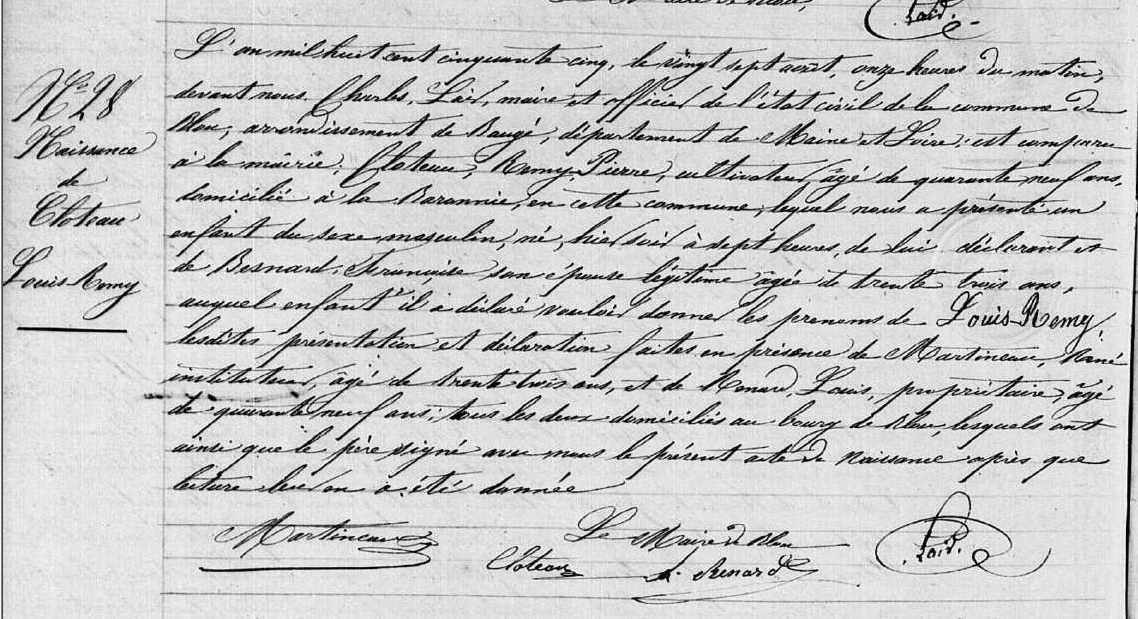 Le Maire de Blou,
Laid.
L'an mil huit cent cinquante cinq, le vingt sept avril, onze heures du matin,
devant nous Charles, Laid, maire et officier de l'état civil de la commune de
Blou, arrondissement de Baugé, département de Maine et Loire: est comparu
à la mairie, Cloteau, Remy Pierre, cultivateur, âgé de quarante neuf ans,
domicilié à la Baronnie, en cette commune, lequel nous a présenté un
enfant du sexe masculin, né, hier soir à sept heures, de lui déclarant et
de Besnard, Françoise son épouse légitime âgée de trente trois ans,
auquel enfant il a déclaré vouloir donner les prenoms de Louis Remy,
lesdites présentation et déclaration faites en présence de Martineau, René
instituteur, âgé de trente trois ans, et de Renard, Louis, propriétaire, âgé
de quarante neuf ans: tous les deux domiciliés au bourg de Blou, lesquels ont
ainsi que le père signé avec nous le présent acte de naissance après que
lecture leur en a été donnée
Nº 28
Naissance
de
Cloteau
Louis Remy
Martineau
Le Maire de Blou
Laid.
Cloteau
Renard